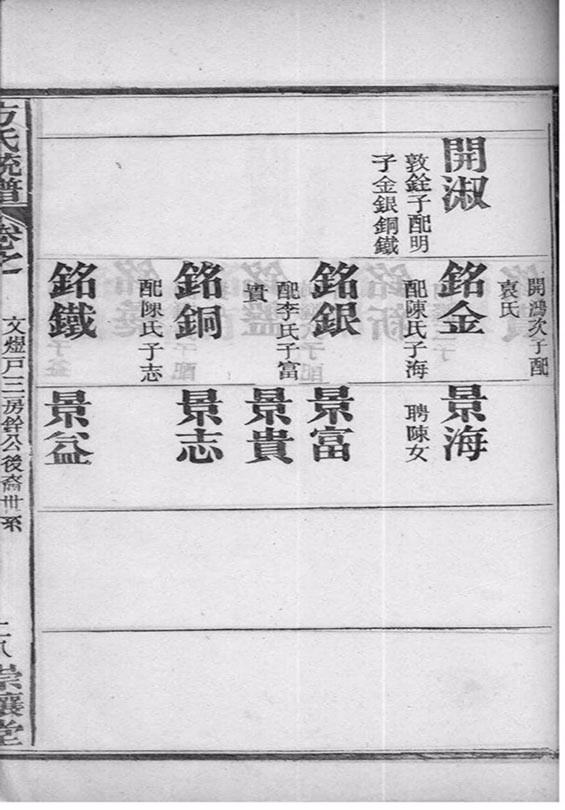 開淑
敦銓子配明
子金銀銅鐵
開鴻次子配
袁氏
銘金
配陳氏子海
銘銀
配李氏子富
貴
銘銅
配陳氏子志
銘鐵
景海
聘陳女
景富
景貴
景志
景益
方氏統譜
卷之
文煜戶三房銓公後裔世系
崇讓堂